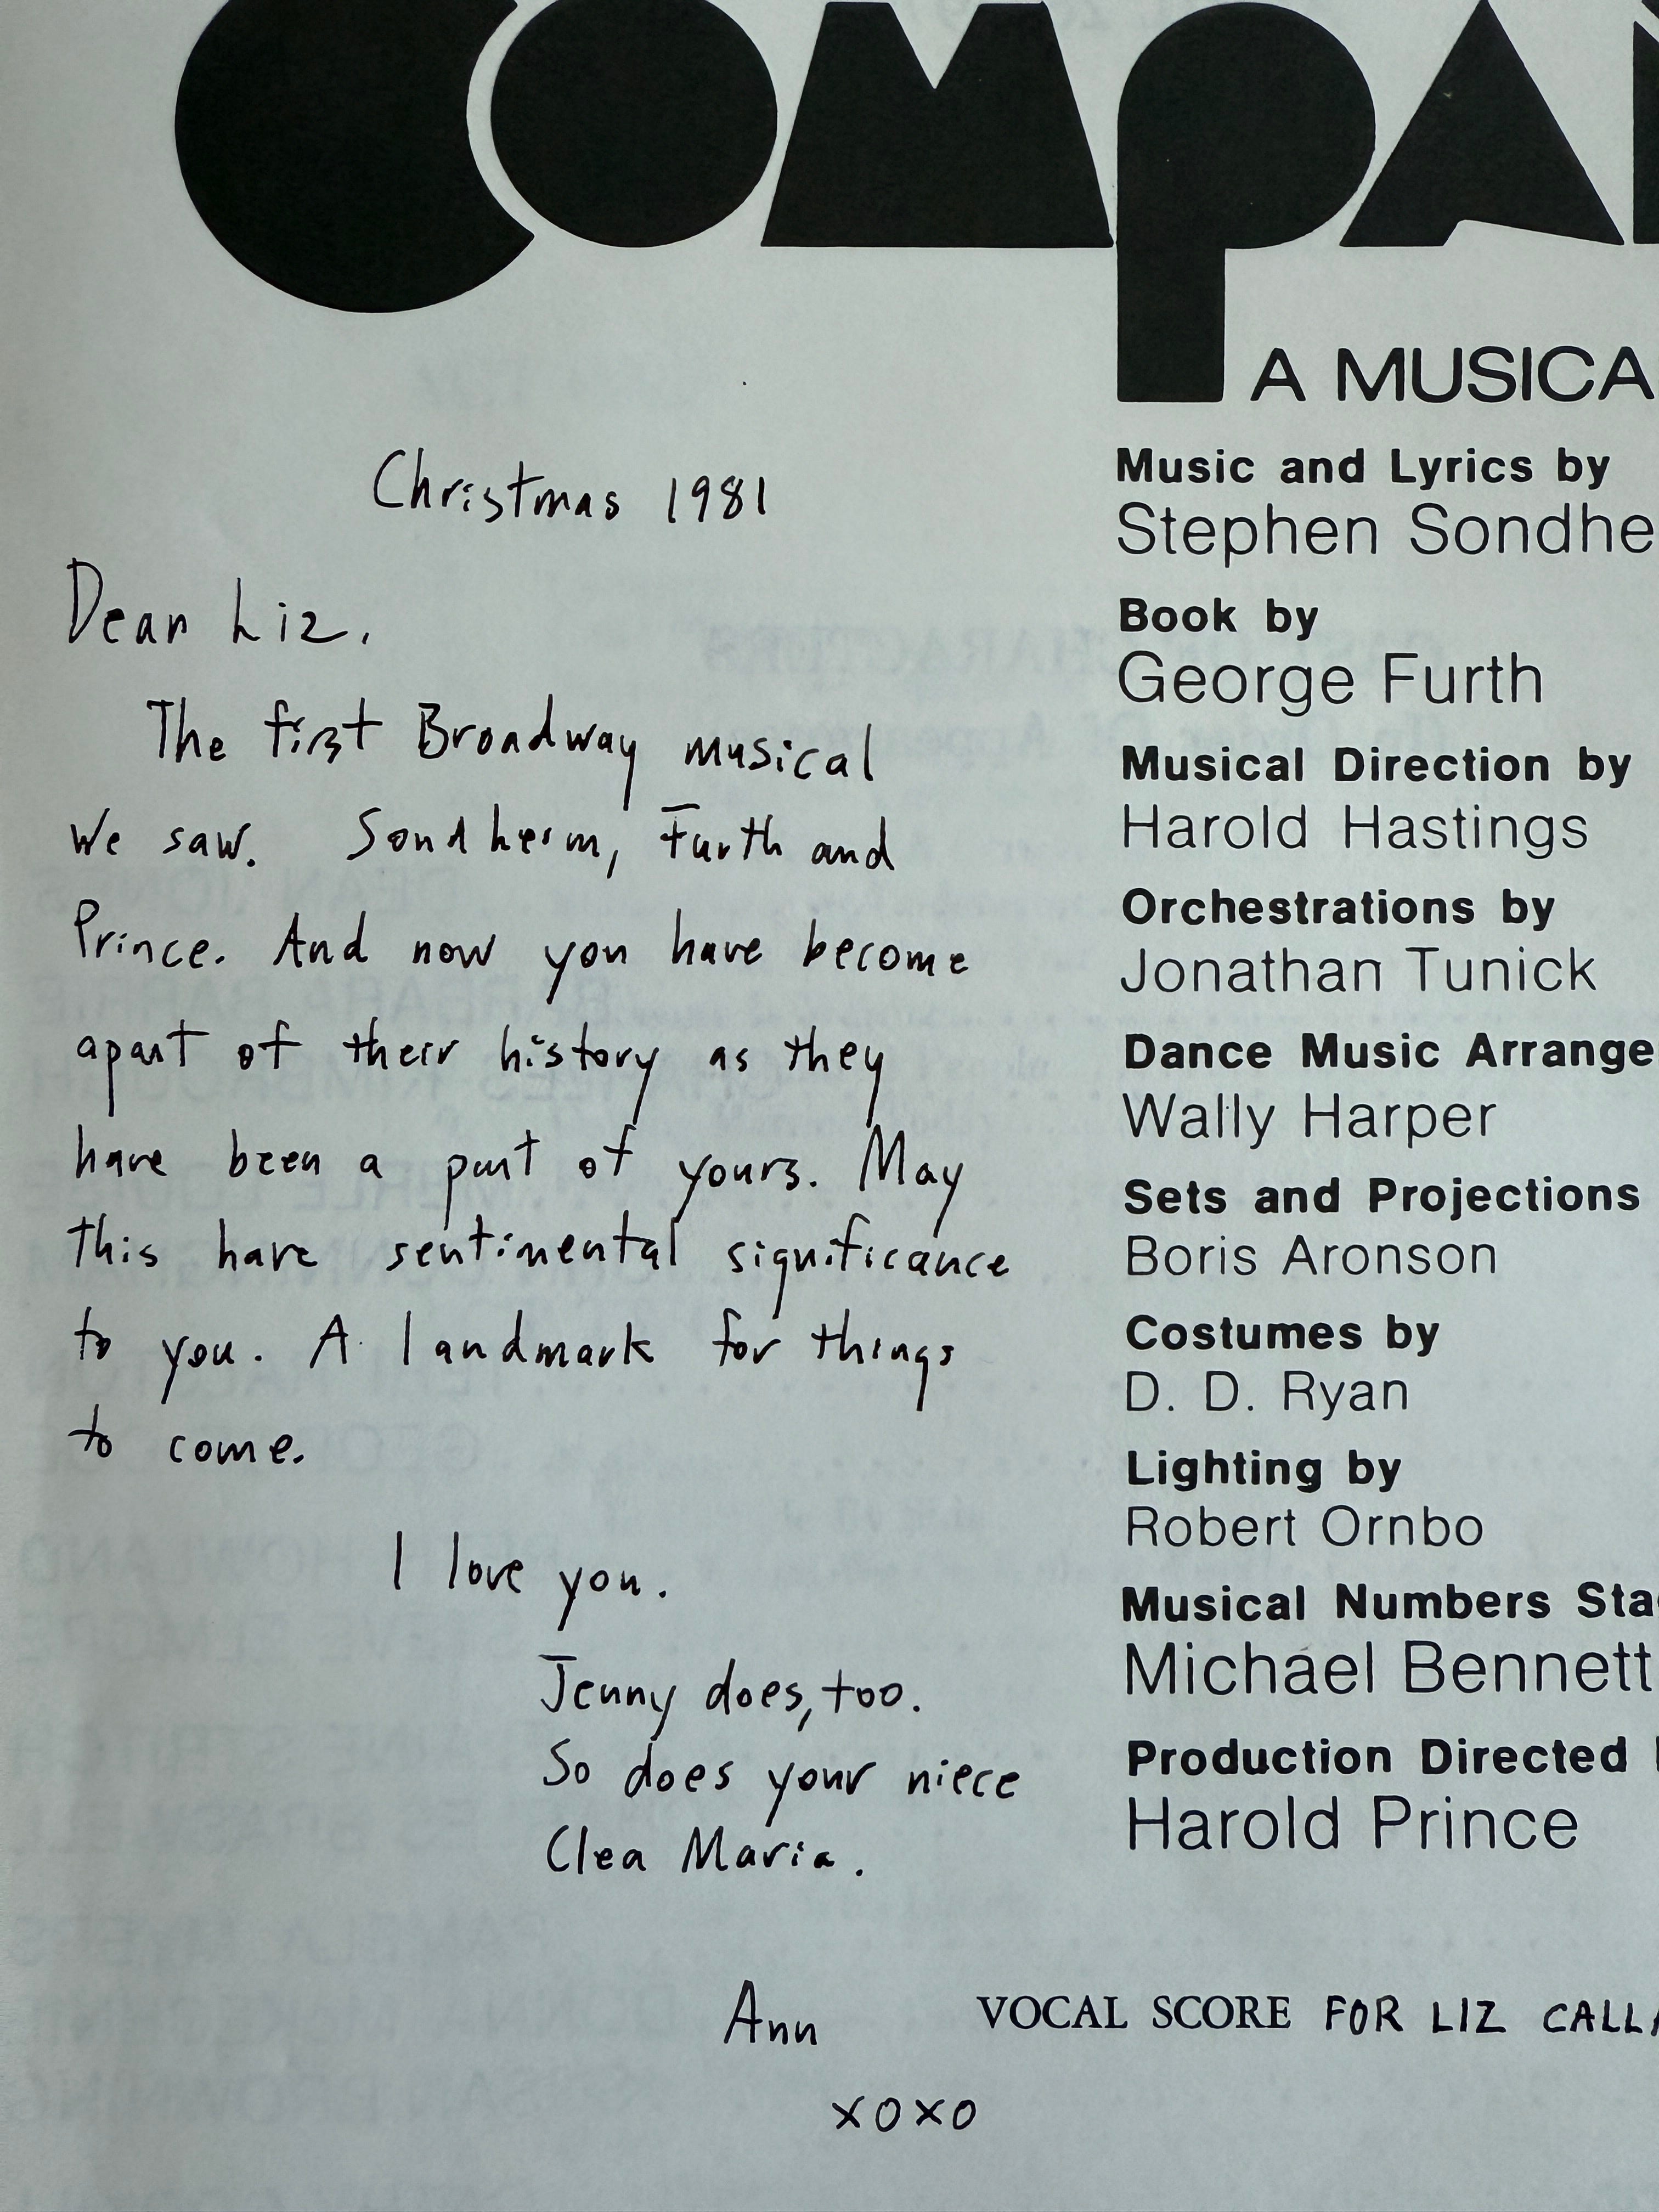 COMPAN
A MUSICA
Christmas 1981
Dear Liz,
The first Broadway musical
we saw. Sondheim, Furth and
Prince. And now you have become
apart of their history as they
have been a part of yours. May
this have sentimental significance
to you. A landmark for things
to come.
I love you.
Jenny does, too.
So does your niece
Clea Maria.
Ann
xoxo
Music and Lyrics by
Stephen Sondhe
Book by
George Furth
Musical Direction by
Harold Hastings
Orchestrations by
Jonathan Tunick
Dance Music Arrange
Wally Harper
Sets and Projections
Boris Aronson
Costumes by
D. D. Ryan
Lighting by
Robert Ornbo
Musical Numbers Sta
Michael Bennett
Production Directed
Harold Prince
VOCAL SCORE FOR LIZ CALLA